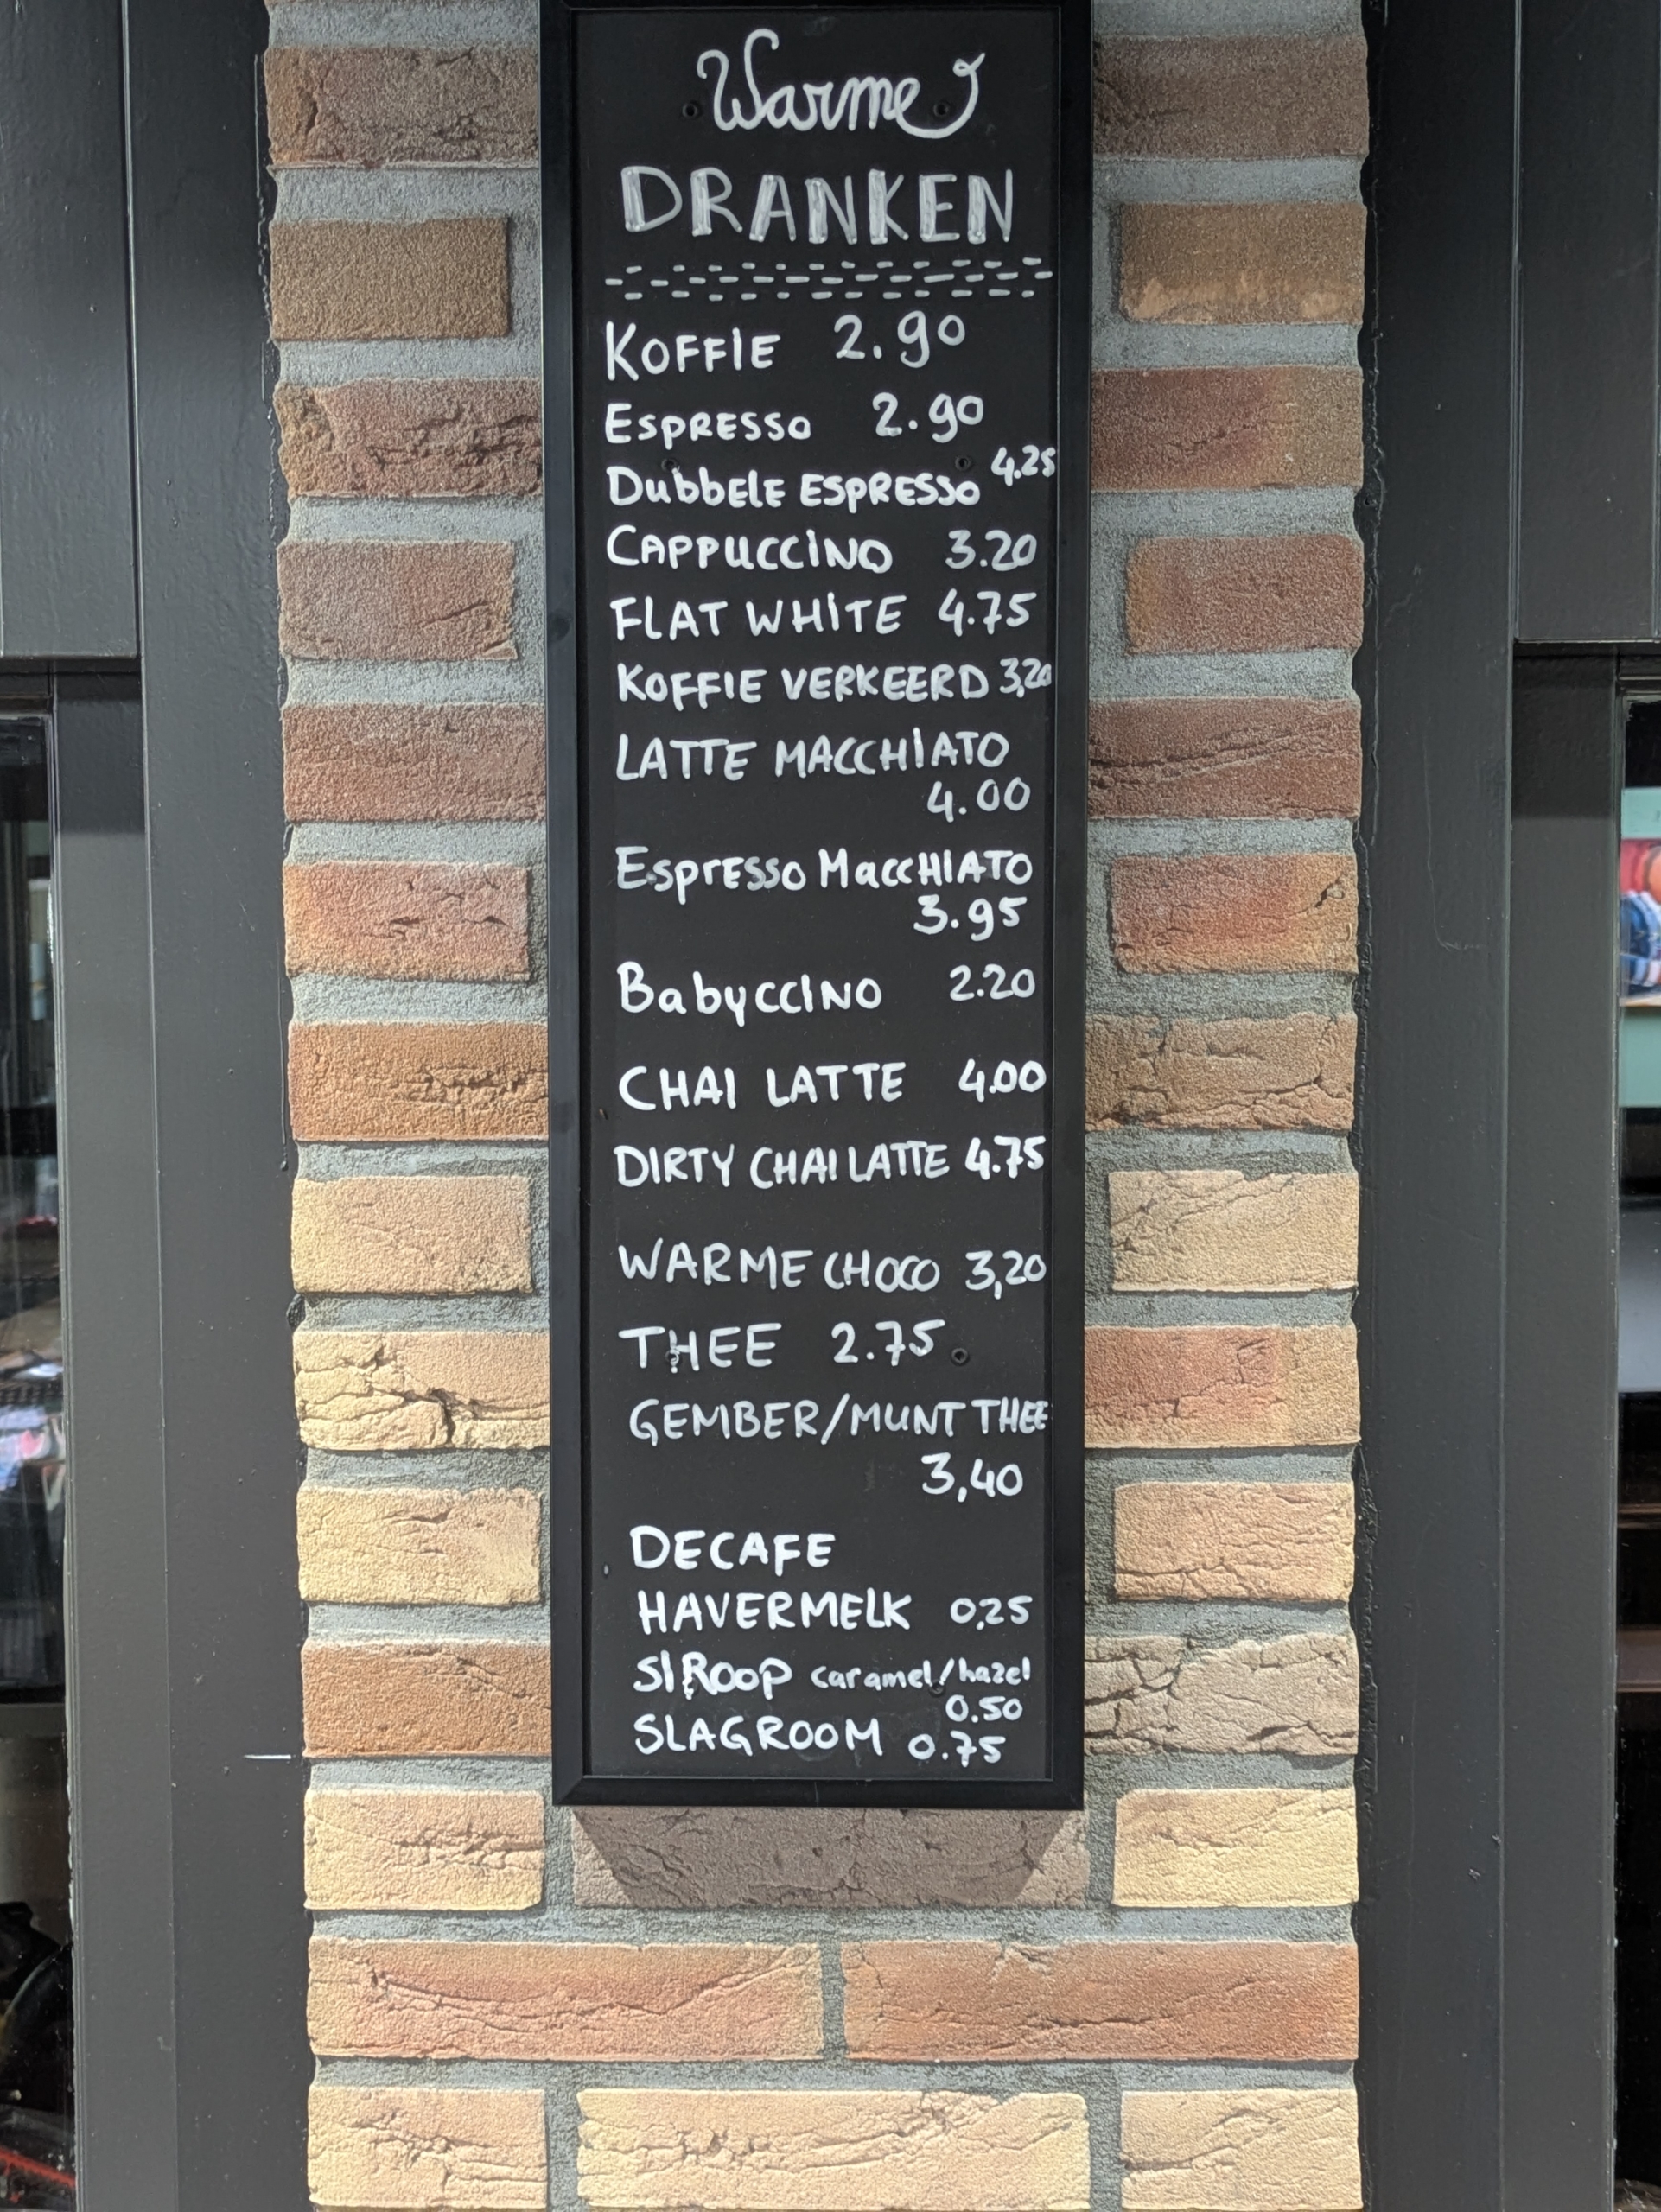 Warme
DRANKEN
KOFFIE 2.90
ESPRESSO 2.90
DubbELE ESPRESSO 4.25
CAPPUCCINO 3.20
FLAT WHITE 4.75
KOFFIE VERKEERD 3,20
LATTE MACCHIATO
4.00
ESPrESSO MaccHIATO
3.95
BabyccINO 2.20
CHAI LATTE 4.00
DIRTY CHAI LATTE 4.75
WARME CHOCO 3,20
THEE 2.75
GEMBER/MUNT THEE
3,40
DECAFE
HAVERMELK 0,25
SIROOP caramel/hazel
0.50
SLAGROOM 0.75